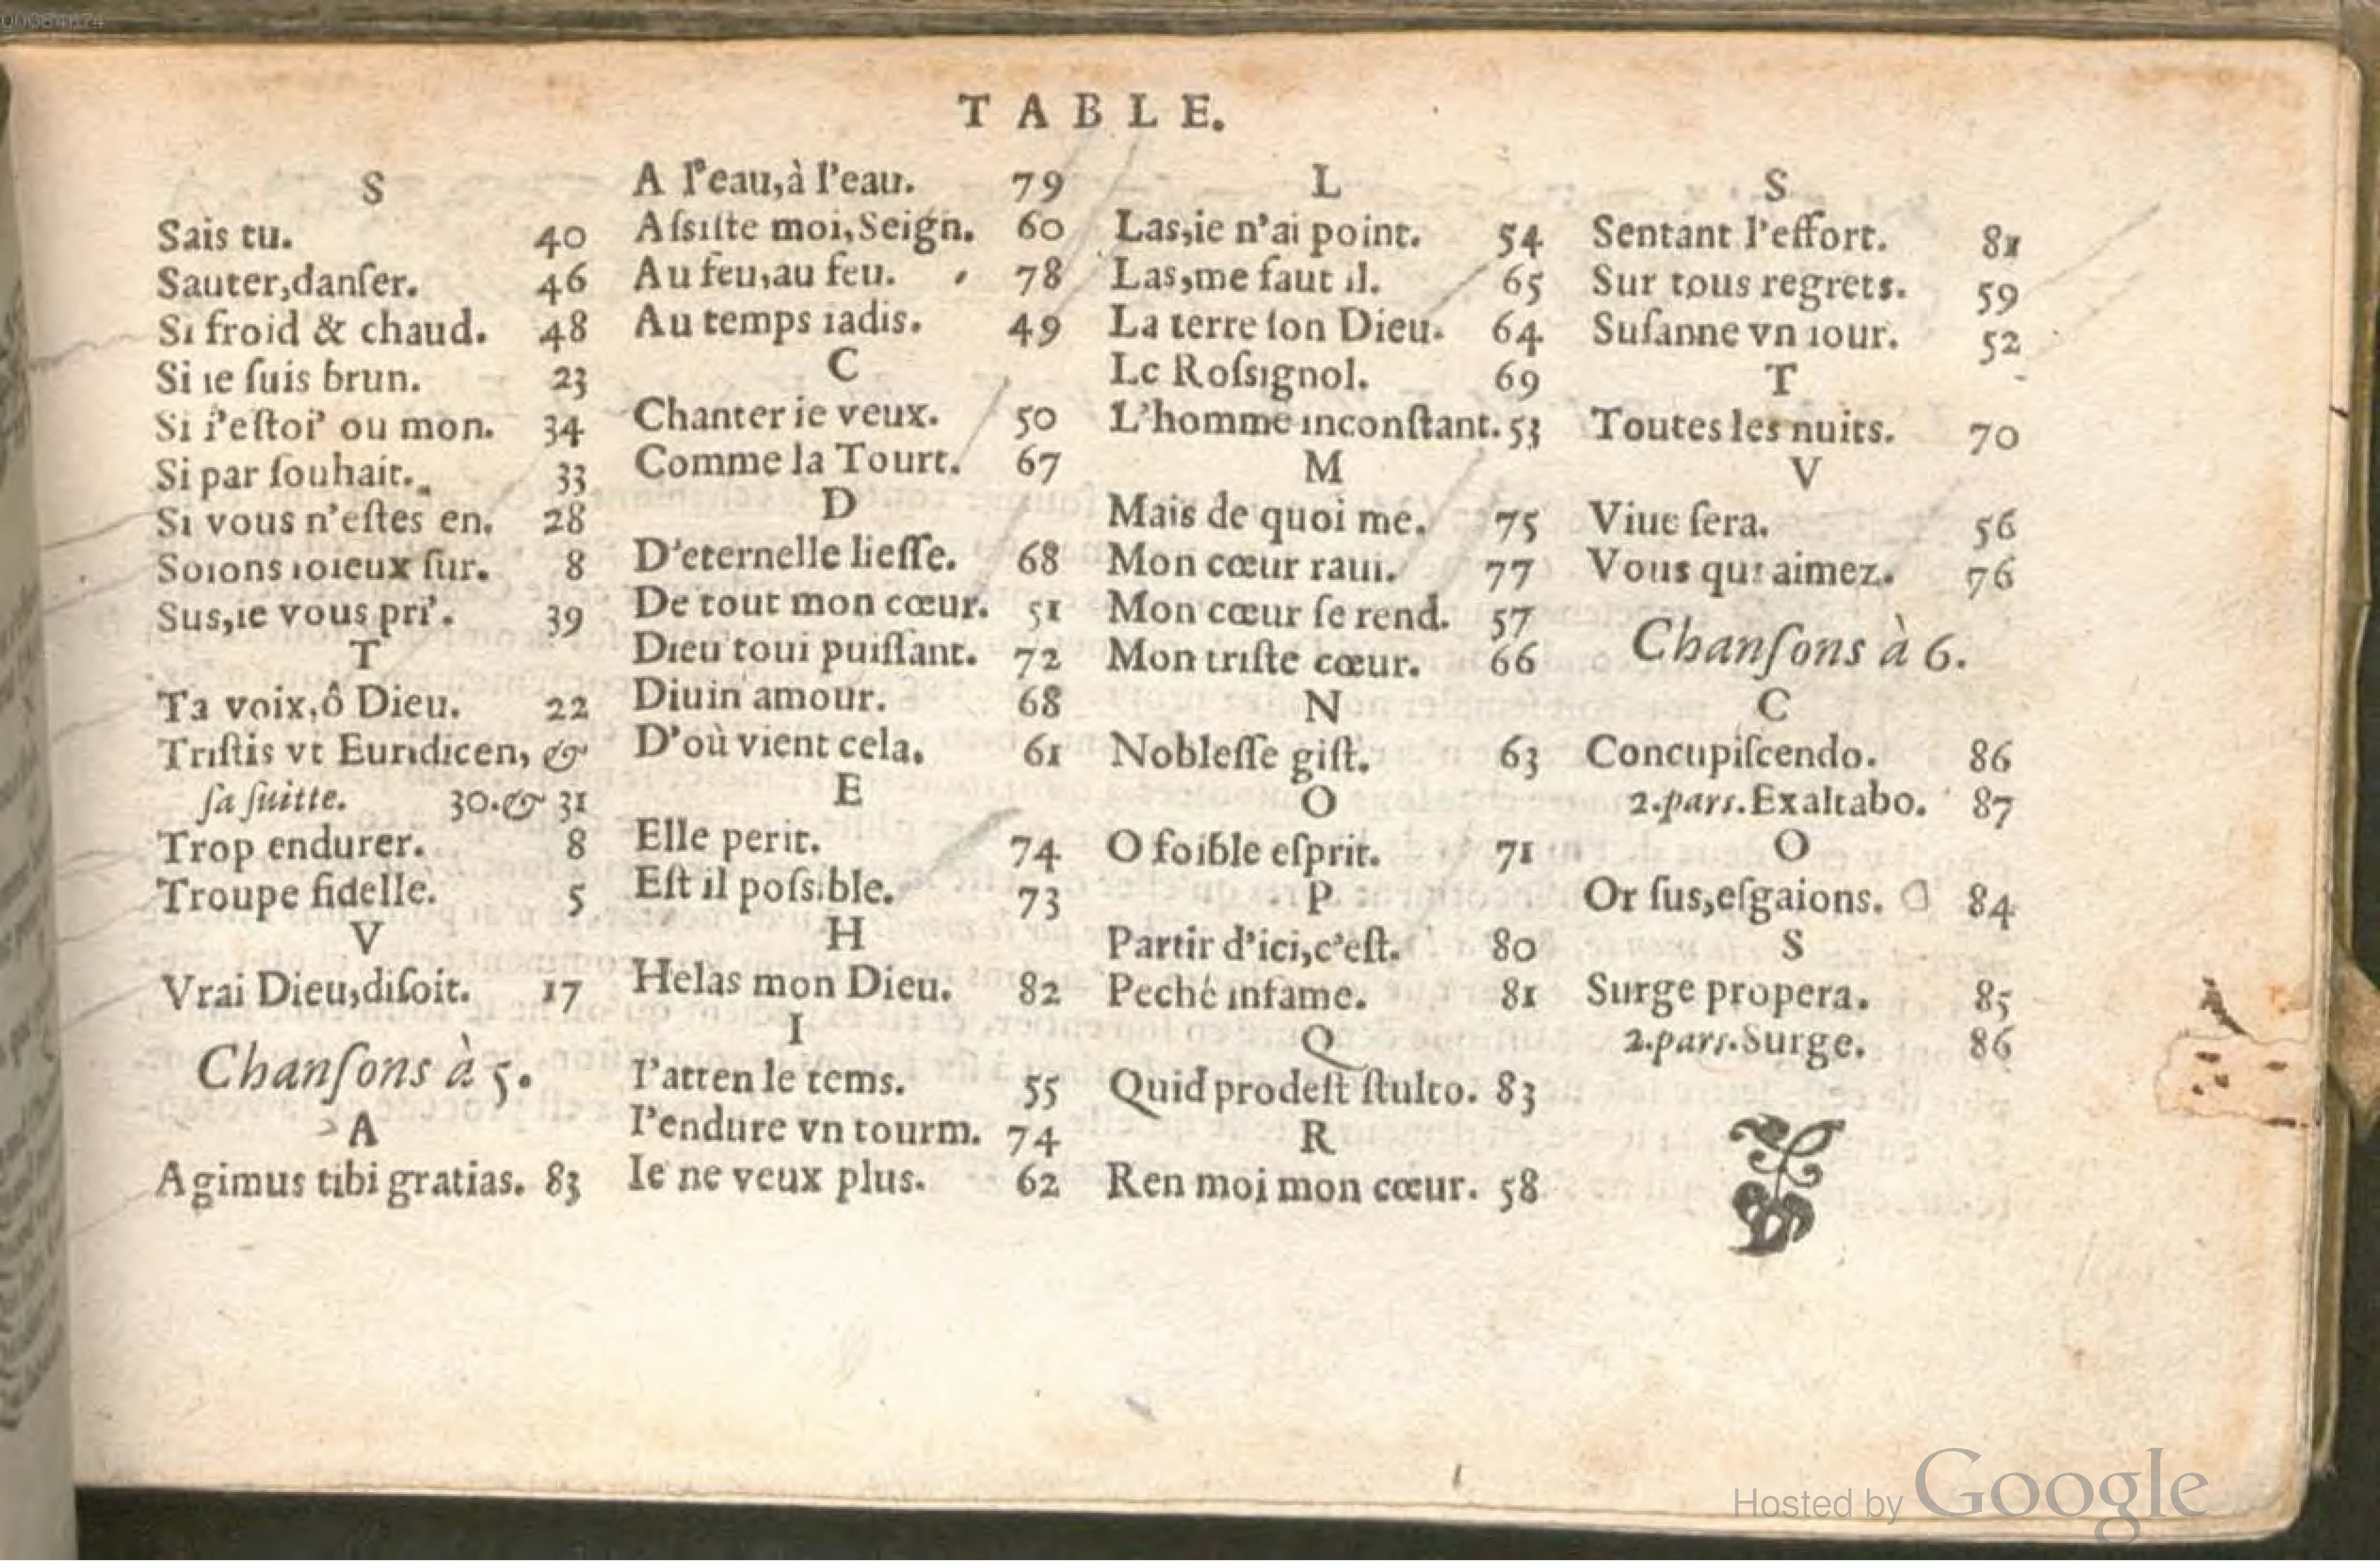 00084674
TABLE.
S
Sais tu. 40
Sauter,danſer. 46
Si froid & chaud. 48
Si ie ſuis brun. 23
Si i'eſtoi' ou mon. 34
Si par ſouhait. 33
Si vous n'eſtes en. 28
Soions ioieux ſur. 8
Sus,ie vous pri'. 39
T
Ta voix,ô Dieu. 22
Triſtis vt Euridicen, &
ſa ſuitte. 30.& 31
Trop endurer. 8
Troupe fidelle. 5
V
Vrai Dieu,diſoit. 17
Chanſons à 5.
A
Agimus tibi gratias. 83
A l'eau,à l'eau. 79
Aſsiſte moi,Seign. 60
Au feu,au feu. 78
Au temps iadis. 49
C
Chanter ie veux. 50
Comme la Tourt. 67
D
D'eternelle lieſſe. 68
De tout mon cœur. 51
Dieu tout puiſſant. 72
Diuin amour. 68
D'où vient cela. 61
E
Elle perit. 74
Eſt il poſsible. 73
H
Helas mon Dieu. 82
I
I'atten le tems. 55
I'endure vn tourm. 74
Ie ne veux plus. 62
L
Las,ie n'ai point. 54
Las,me faut il. 65
La terre ſon Dieu. 64
Le Roſsignol. 69
L'homme inconſtant. 53
M
Mais de quoi me. 75
Mon cœur raui. 77
Mon cœur ſe rend. 57
Mon triſte cœur. 66
N
Nobleſſe giſt. 63
O
O foible eſprit. 71
P
Partir d'ici,c'eſt. 80
Peché infame. 81
Q
Quid prodeſt ſtulto. 83
R
Ren moi mon cœur. 58
S
Sentant l'effort. 81
Sur tous regrets. 59
Suſanne vn iour. 52
T
Toutes les nuits. 70
V
Viue ſera. 56
Vous qui aimez. 76
Chanſons à 6.
C
Concupiſcendo. 86
2.pars.Exaltabo. 87
O
Or ſus,eſgaions. 84
S
Surge propera. 85
2.pars.Surge. 86
Hosted by Google